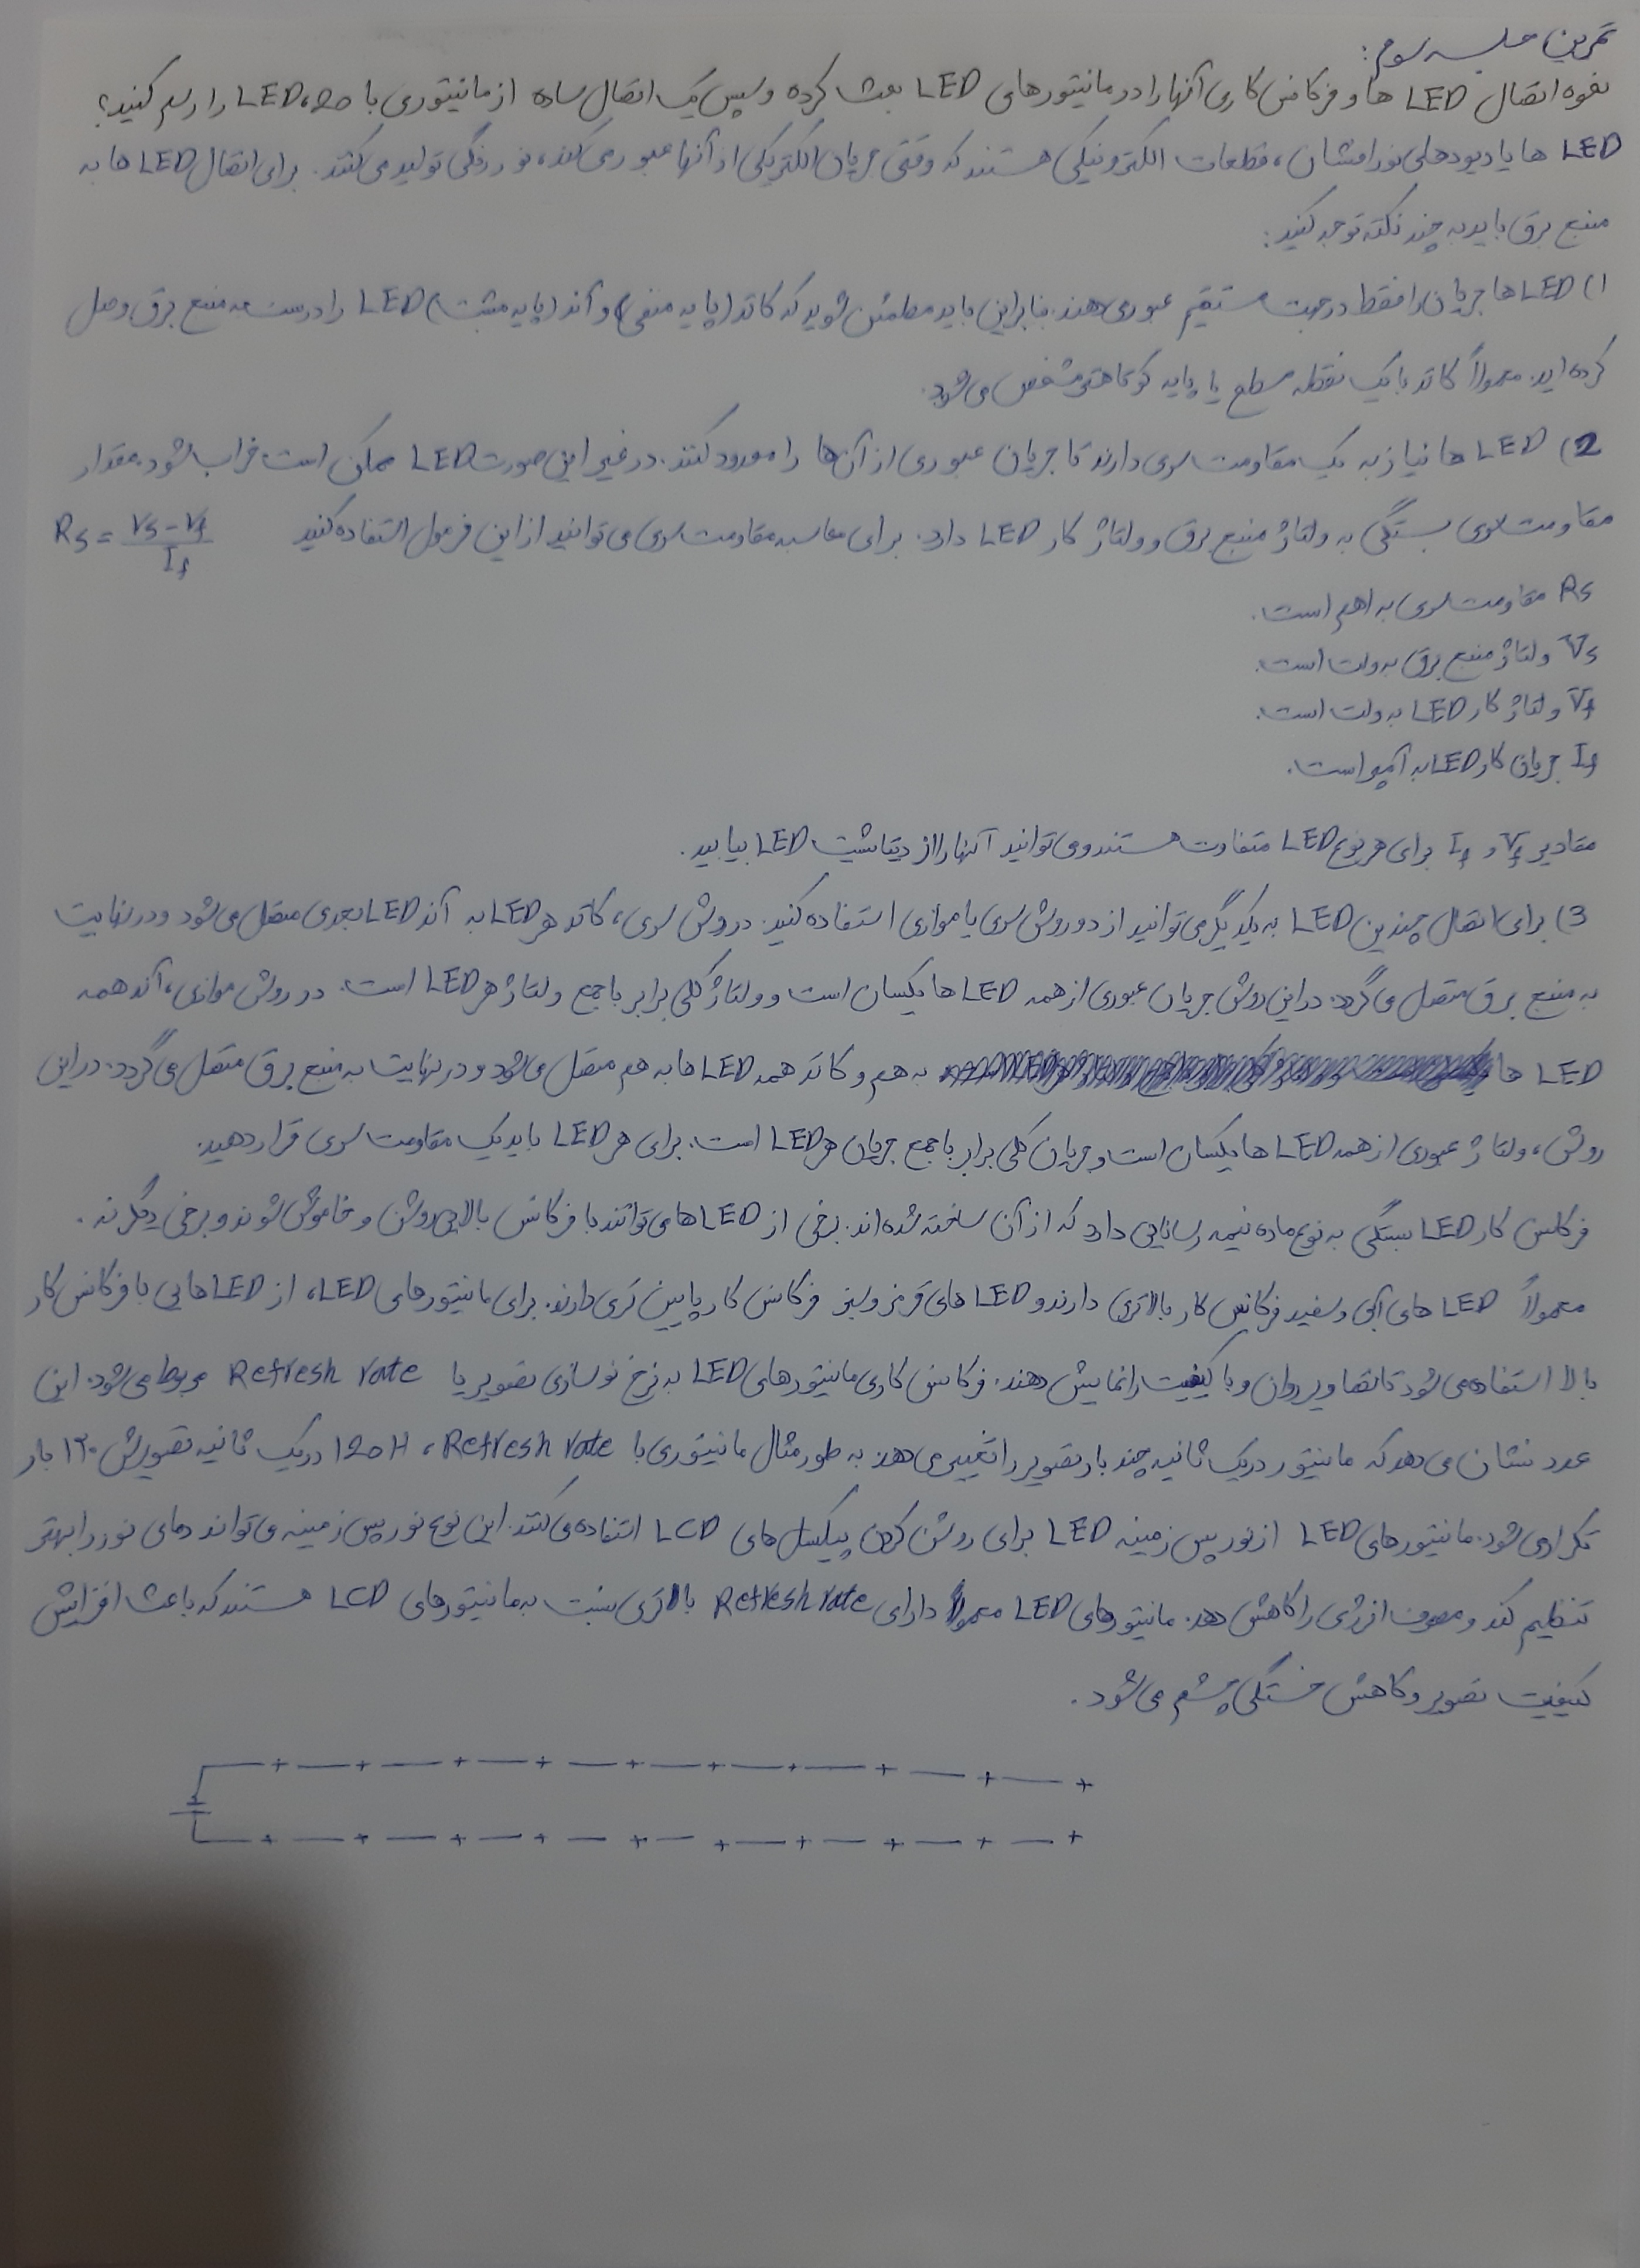 تمرین جلسه سوم:
نحوه اتصال LED ها و فرکانس کاری آنها را در مانیتورهای LED بحث کرده و سپس یک اتصال ساده از مانیتوری با 20، LED را رسم کنید؟
LED ها یا دیودهای نورافشان، قطعات الکترونیکی هستند که وقتی جریان الکتریکی از آنها عبور می کند، نور رنگی تولید می کنند. برای اتصال LED ها به
منبع برق باید به چند نکته توجه کنید:
1) LED ها جریان را فقط در جهت مستقیم عبور می دهند. بنابراین باید مطمئن شوید که کاتد (پایه منفی) و آند (پایه مثبت) LED را درست به منبع برق وصل
کرده اید. معمولاً کاتد با یک نقطه مسطح یا پایه کوتاهتر مشخص می شود.
2) LED ها نیاز به یک مقاومت سری دارند تا جریان عبوری از آن ها را محدود کنند. در غیر این صورت LED ممکن است خراب شود. مقدار
مقاومت سری بستگی به ولتاژ منبع برق و ولتاژ کار LED دارد. برای محاسبه مقاومت سری می توانید از این فرمول استفاده کنید Rs = Vs - Vf / If
Rs مقاومت سری به اهم است.
Vs ولتاژ منبع برق به ولت است.
Vf ولتاژ کار LED به ولت است.
If جریان کار LED به آمپر است.
مقادیر Vf و If برای هر نوع LED متفاوت هستند و می توانید آنها را از دیتاشیت LED بیابید.
3) برای اتصال چندین LED به یکدیگر می توانید از دو روش سری یا موازی استفاده کنید. در روش سری، کاتد هر LED به آند LED بعدی متصل می شود و در نهایت
به منبع برق متصل می گردد. در این روش جریان عبوری از همه LED ها یکسان است و ولتاژ کلی برابر با جمع ولتاژ هر LED است. در روش موازی، آند همه
LED ها به هم و کاتد همه LED ها به هم متصل می شود و در نهایت به منبع برق متصل می گردد. در این
روش، ولتاژ عبوری از همه LED ها یکسان است و جریان کلی برابر با جمع جریان هر LED است. برای هر LED باید یک مقاومت سری قرار دهید.
فرکانس کار LED بستگی به نوع ماده نیمه رسانایی دارد که از آن ساخته شده اند. برخی از LED ها می توانند با فرکانس بالایی روشن و خاموش شوند و برخی دیگر نه.
معمولاً LED های آبی و سفید فرکانس کار بالاتری دارند و LED های قرمز و سبز فرکانس کار پایین تری دارند. برای مانیتورهای LED، از LED هایی با فرکانس کار
بالا استفاده می شود تا تصاویر روان و با کیفیت را نمایش دهند. فرکانس کاری مانیتورهای LED به نرخ نوسازی تصویر یا Refresh rate مربوط می شود. این
عدد نشان می دهد که مانیتور در یک ثانیه چند بار تصویر را تغییر می دهد. به طور مثال مانیتوری با Refresh rate، 120H در یک ثانیه تصویرش ۱۲۰ بار
تکرار می شود. مانیتورهای LED از نور پس زمینه LED برای روشن کردن پیکسل های LCD استفاده می کنند. این نوع نور پس زمینه می تواند دمای نور را بهتر
تنظیم کند و مصرف انرژی را کاهش دهد. مانیتورهای LED معمولاً دارای Refresh rate بالاتری نسبت به مانیتورهای LCD هستند که باعث افزایش
کیفیت تصویر و کاهش خستگی چشم می شود.
+ — + — + — + — + — + — + — + — + — +
+ — + — + — + — + — + — + — + — + — +